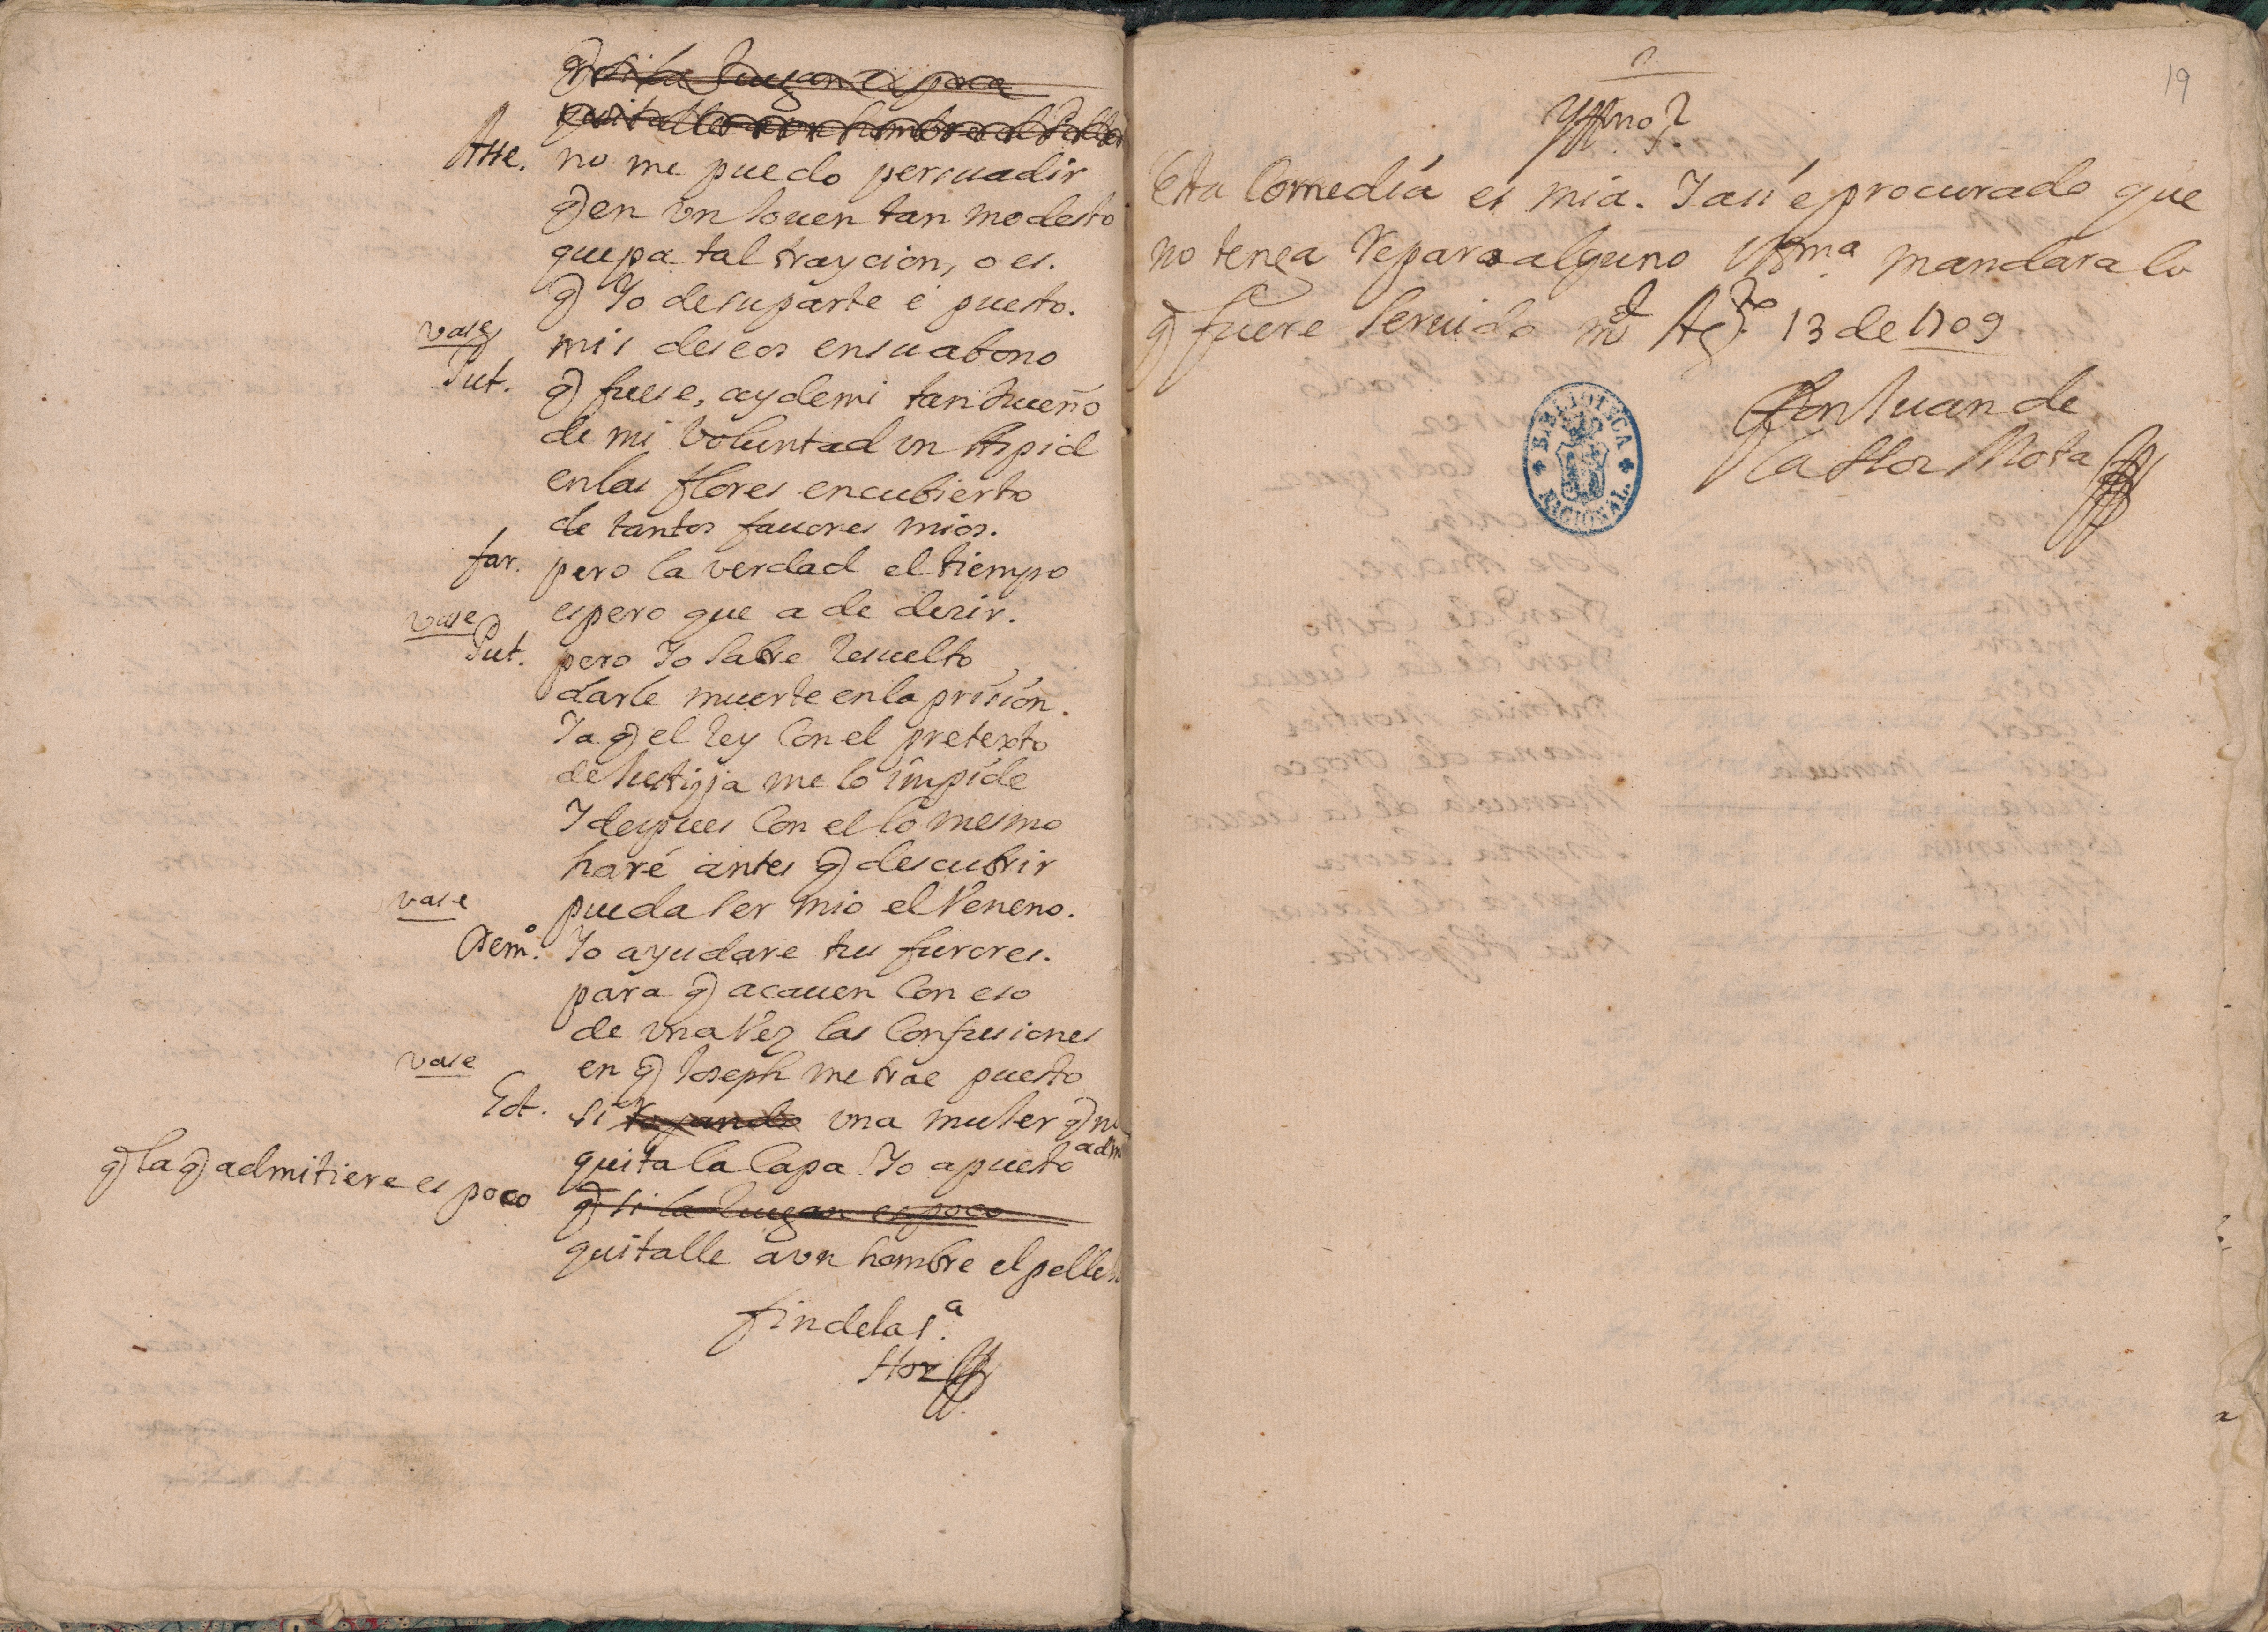 q si la Juzgan es poco
quitalle a un hombre el pelle
Asse. no me puedo persuadir
q en vn Jouen tan modesto
quepa tal traycion, o es.
q Yo de su parte é puesto.
vase mis deseos en su abono
Put. q fuese, ay de mi tan dueño
de mi Voluntad vn Aspid
en las flores encubierto
de tantos fauores mios.
far. pero la verdad el tiempo
vase espero que a de dezir.
Put. pero Yo Sabre Resuelto
darle muerte en la prisión.
Ya q el Rey Con el pretexto
de Justizia me lo impide
Y despues Con el lo mesmo
haré antes q descubrir
vase pueda ser mio el Veneno.
Demo. Yo ayudare tus furores.
para q acauen Con eso
de vna Vez las Confusiones
vase en q Joseph me trae puesto
Est. si topando vna muJer q no
adm
quita la Capa Yo apuesto
q la q admitiere es poco
q si la Juzgan es poco
quitalle a vn hombre el pelle
fin de la 1.a
Hoz
19
Yllmo. S.
Esta Comedia es mia. Y asi e procurado que
no tenga Reparo alguno VSma. mandara lo
q fuere Seruido Md Agto 13 de 1709
Don Juan de
la Hoz Mota
BIBLIOTECA NACIONAL.